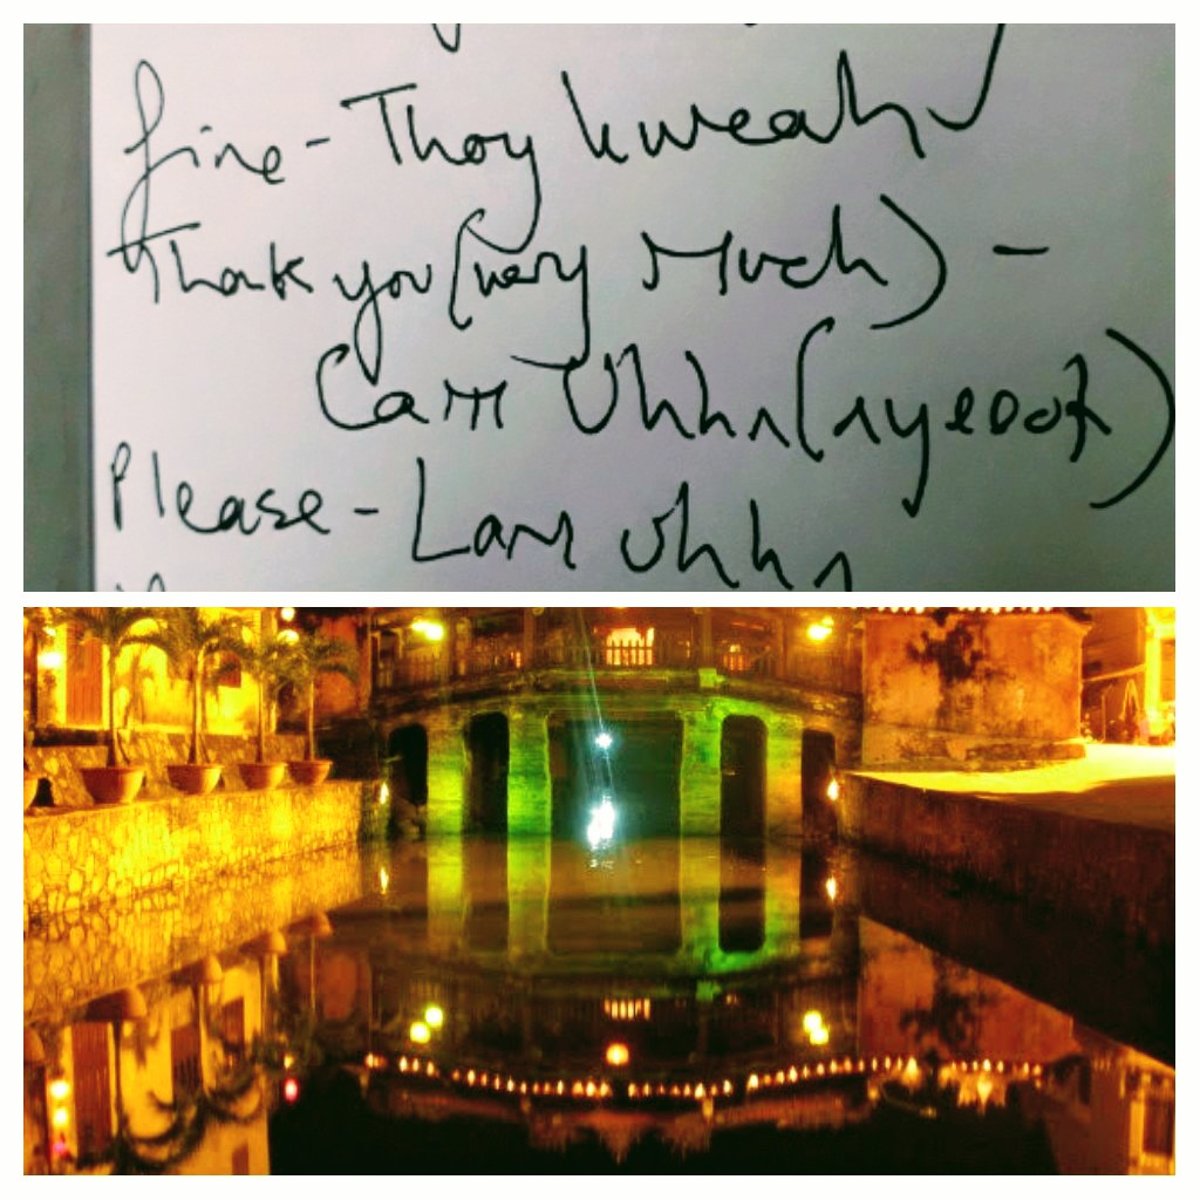 fine - Thoy kweah
Thank you (very Much) -
Cam Uhhn (nyeook)
Please - Lam uhhn